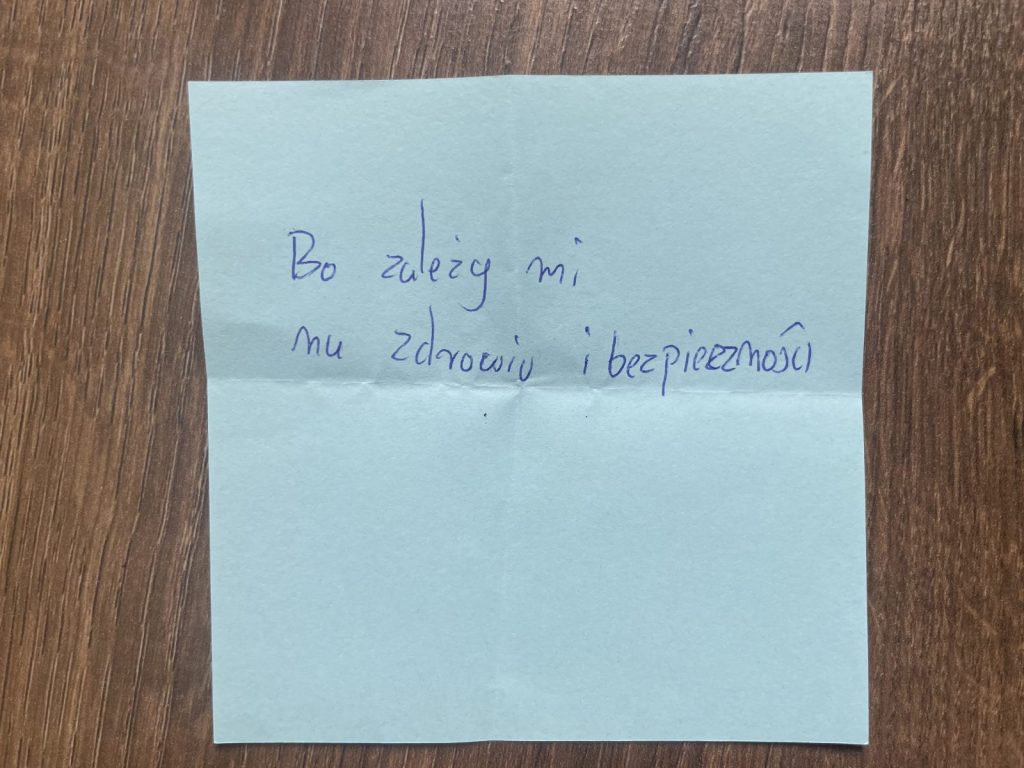 Bo zależy mi
na zdrowiu i bezpieczności